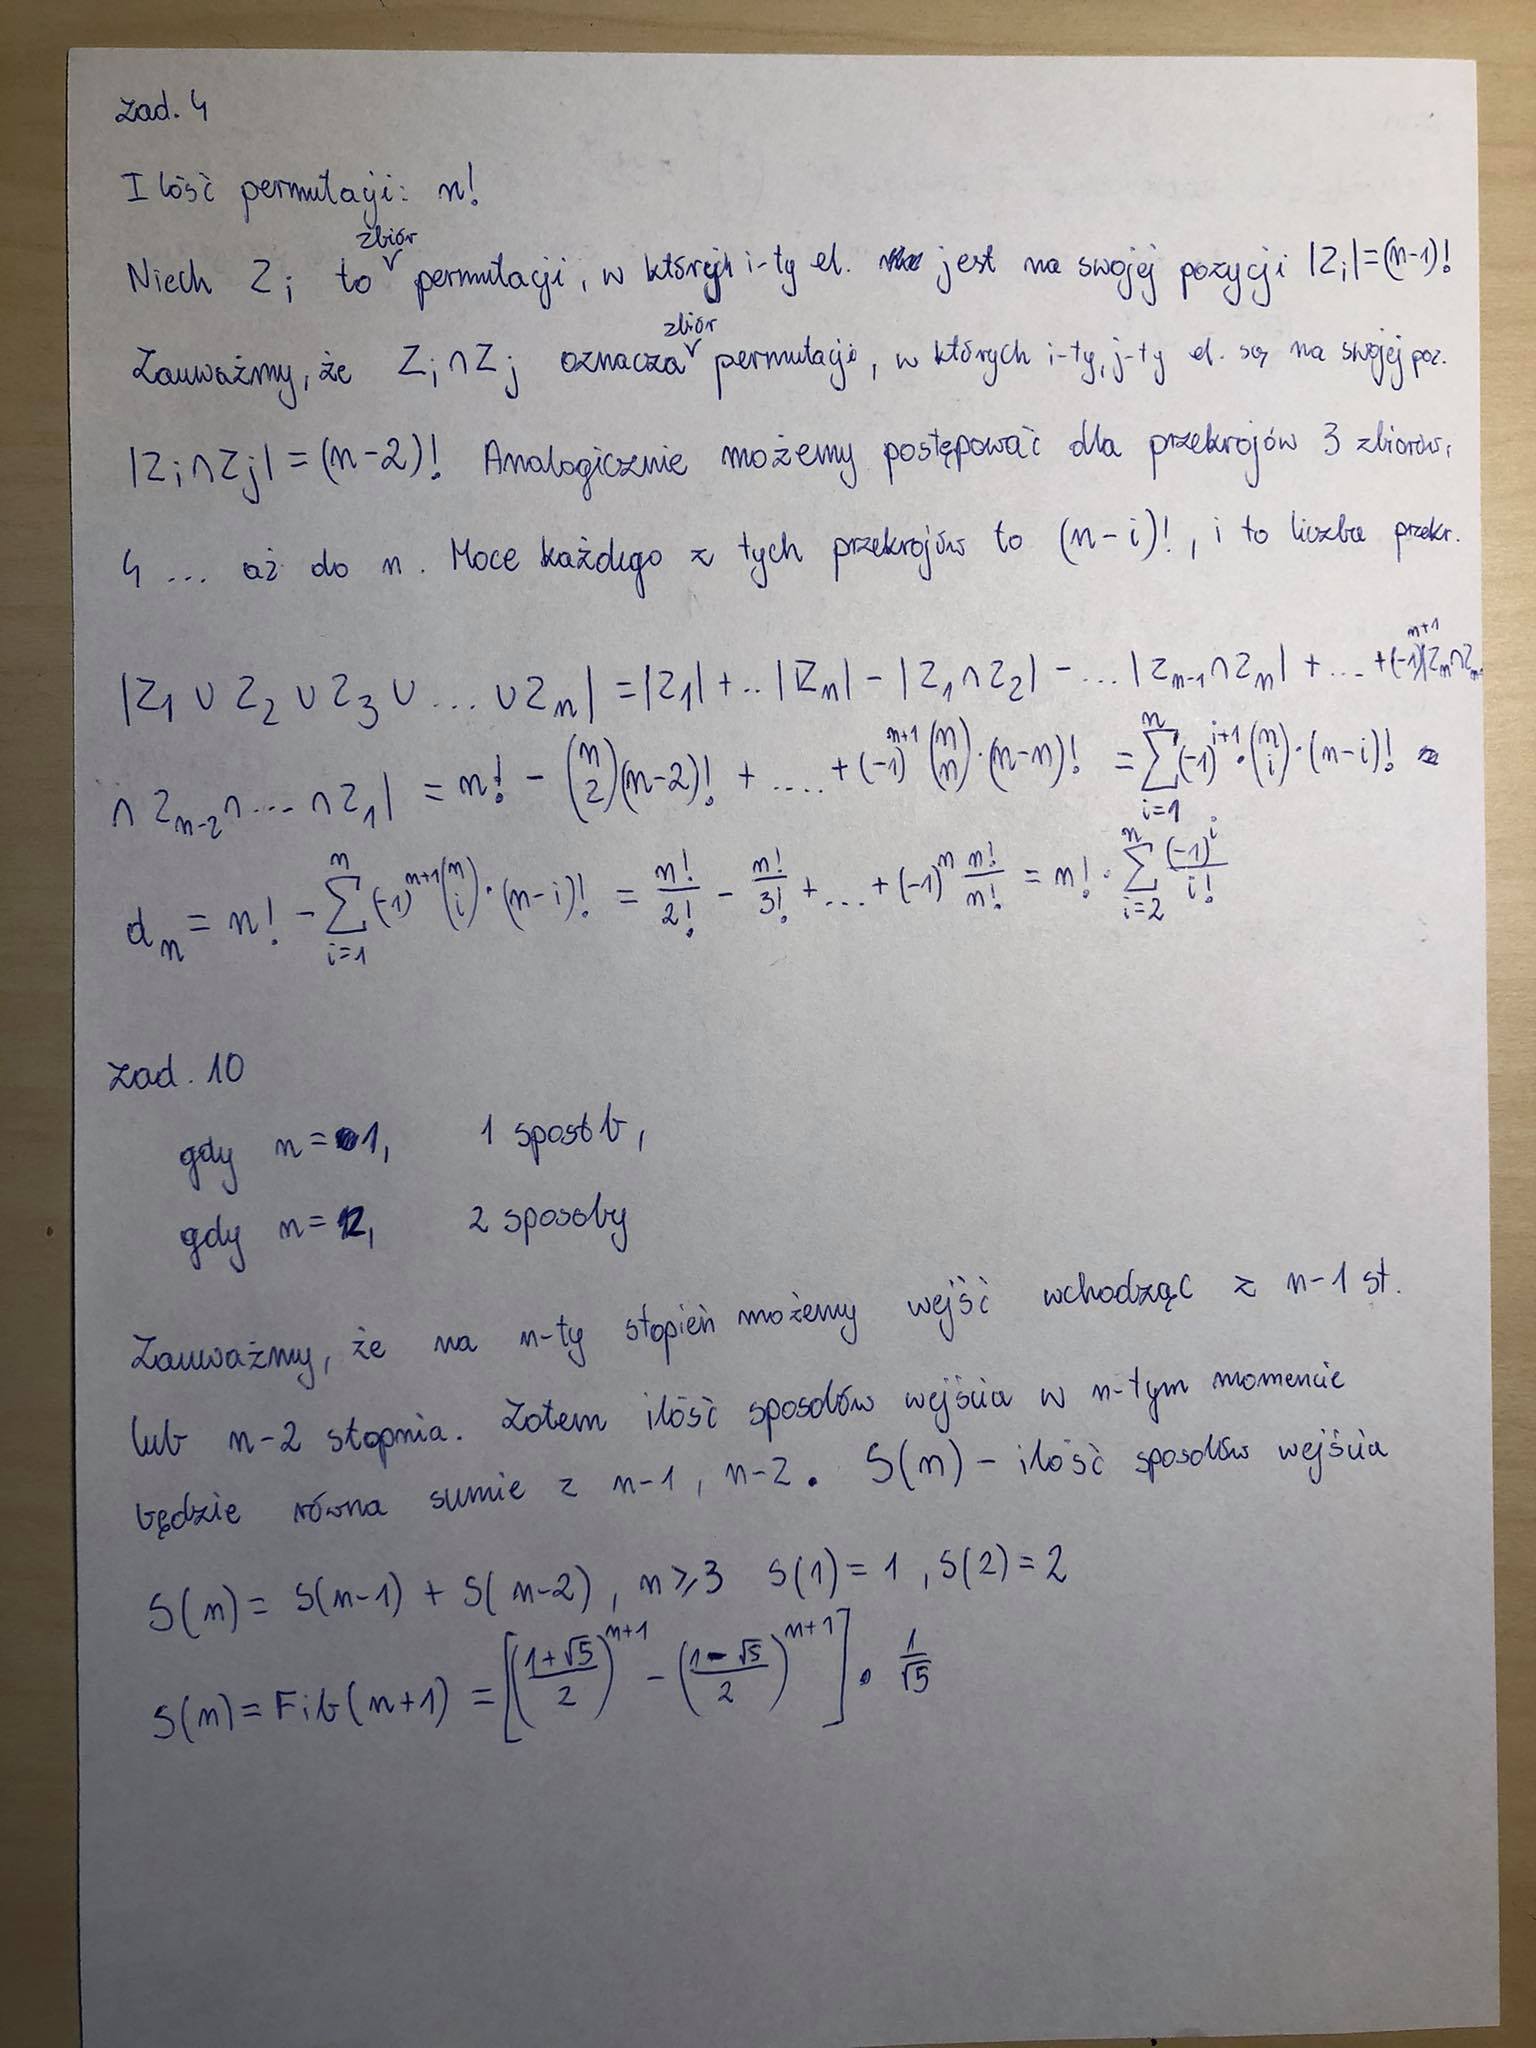 Zad. 4
Ilość permutacji: n!
Niech Z_i to zbiór permutacji, w których i-ty el. jest na swojej pozycji |Z_i|=(n-1)!
Zauważmy, że Z_i ∩ Z_j oznacza zbiór permutacji, w których i-ty, j-ty el. są na swojej poz.
|Z_i ∩ Z_j| = (n-2)! Analogicznie możemy postępować dla przekrojów 3 zbiorów,
4 ... aż do n. Moce każdego z tych przekrojów to (n-i)!, i to liczba przekr.
|Z_1 ∪ Z_2 ∪ Z_3 ∪ ... ∪ Z_n| = |Z_1| + .. |Z_n| - |Z_1 ∩ Z_2| - ... |Z_{n-1} ∩ Z_n| + ... + (-1)^{n+1} |Z_n ∩ Z_{n-1}
∩ Z_{n-2} ∩ ... ∩ Z_1| = n! - \binom{n}{2}(n-2)! + .... + (-1)^{n+1} \binom{n}{n} · (n-n)! = \sum_{i=1}^{n} (-1)^{i+1} · \binom{n}{i} · (n-i)!
d_n = n! - \sum_{i=1}^{n} (-1)^{n+1} \binom{n}{i} · (n-i)! = \frac{n!}{2!} - \frac{n!}{3!} + ... + (-1)^n \frac{n!}{n!} = n! · \sum_{i=2}^{n} \frac{(-1)^i}{i!}
Zad. 10
gdy n = 1, 1 sposób,
gdy n = 2, 2 sposoby
Zauważmy, że na n-ty stopień możemy wejść wchodząc z n-1 st.
lub n-2 stopnia. Zatem ilość sposobów wejścia w n-tym momencie
będzie równa sumie z n-1, n-2. S(n) - ilość sposobów wejścia
S(n) = S(n-1) + S(n-2), n ⩾ 3 S(1) = 1, S(2) = 2
S(n) = Fib(n+1) = [(\frac{1+√5}{2})^{n+1} - (\frac{1-√5}{2})^{n+1}] · \frac{1}{√5}